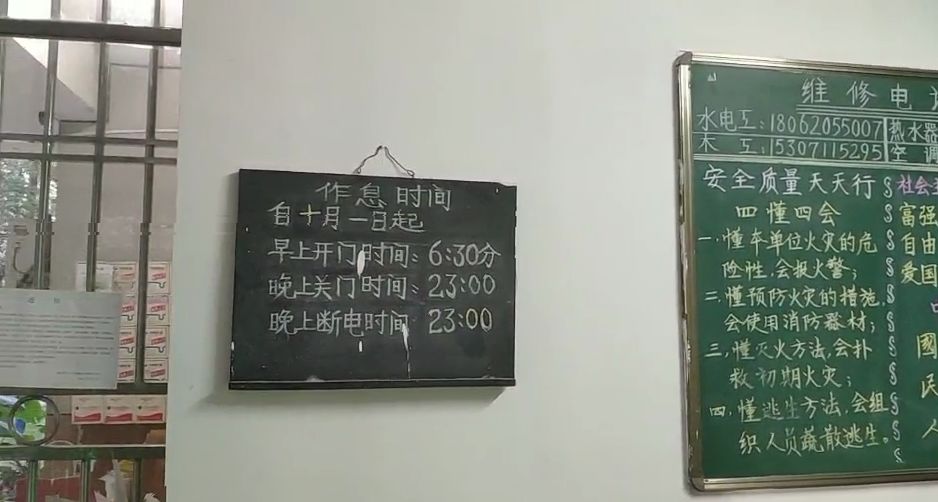 作息时间
自十月一日起
早上开门时间：6:30分
晚上关门时间：23:00
晚上断电时间 23:00
维修电
水电工：18062055007
热水器
木 工：15307115295
空 调
安全质量天天行
四懂四会
一.懂本单位火灾的危
险性,会报火警；
二.懂预防火灾的措施,
会使用消防器材；
三,懂灭火方法,会扑
救初期火灾；
四,懂逃生方法,会组
织人员疏散逃生。
社会主
富强
自由
爱国
國
民
人